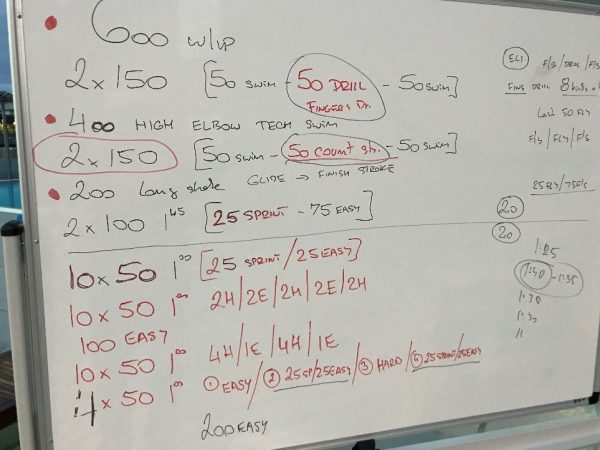 600 W/UP
2 x 150 [50 SWIM - 50 DRILL - 50 SWIM]
FINGERS
400 HIGH ELBOW TECH SWIM
2 x 150 [50 SWIM - 50 COUNT ST. - 50 SWIM]
200 Long stroke GLIDE → FINISH STROKE
2 x 100 1'45 [25 SPRINT - 75 EASY]
10 x 50 1'00 [25 SPRINT / 25 EASY]
10 x 50 1'00 2H/2E/2H/2E/2H
100 EASY
10 x 50 1'00 4H/1E/4H/1E
4 x 50 1'00 ① EASY / ② 25 SP/25 EASY / ③ HARD / ④ 25 SPRINT/25 EASY
200 EASY
F/S / DRILL / F/S
FINS DRILL 8
Last 50 FLY
F/S / FLY / F/S
25 FLY / 75 F/S
20
20
1:25
1:30 - 1:35
1:30
1:30